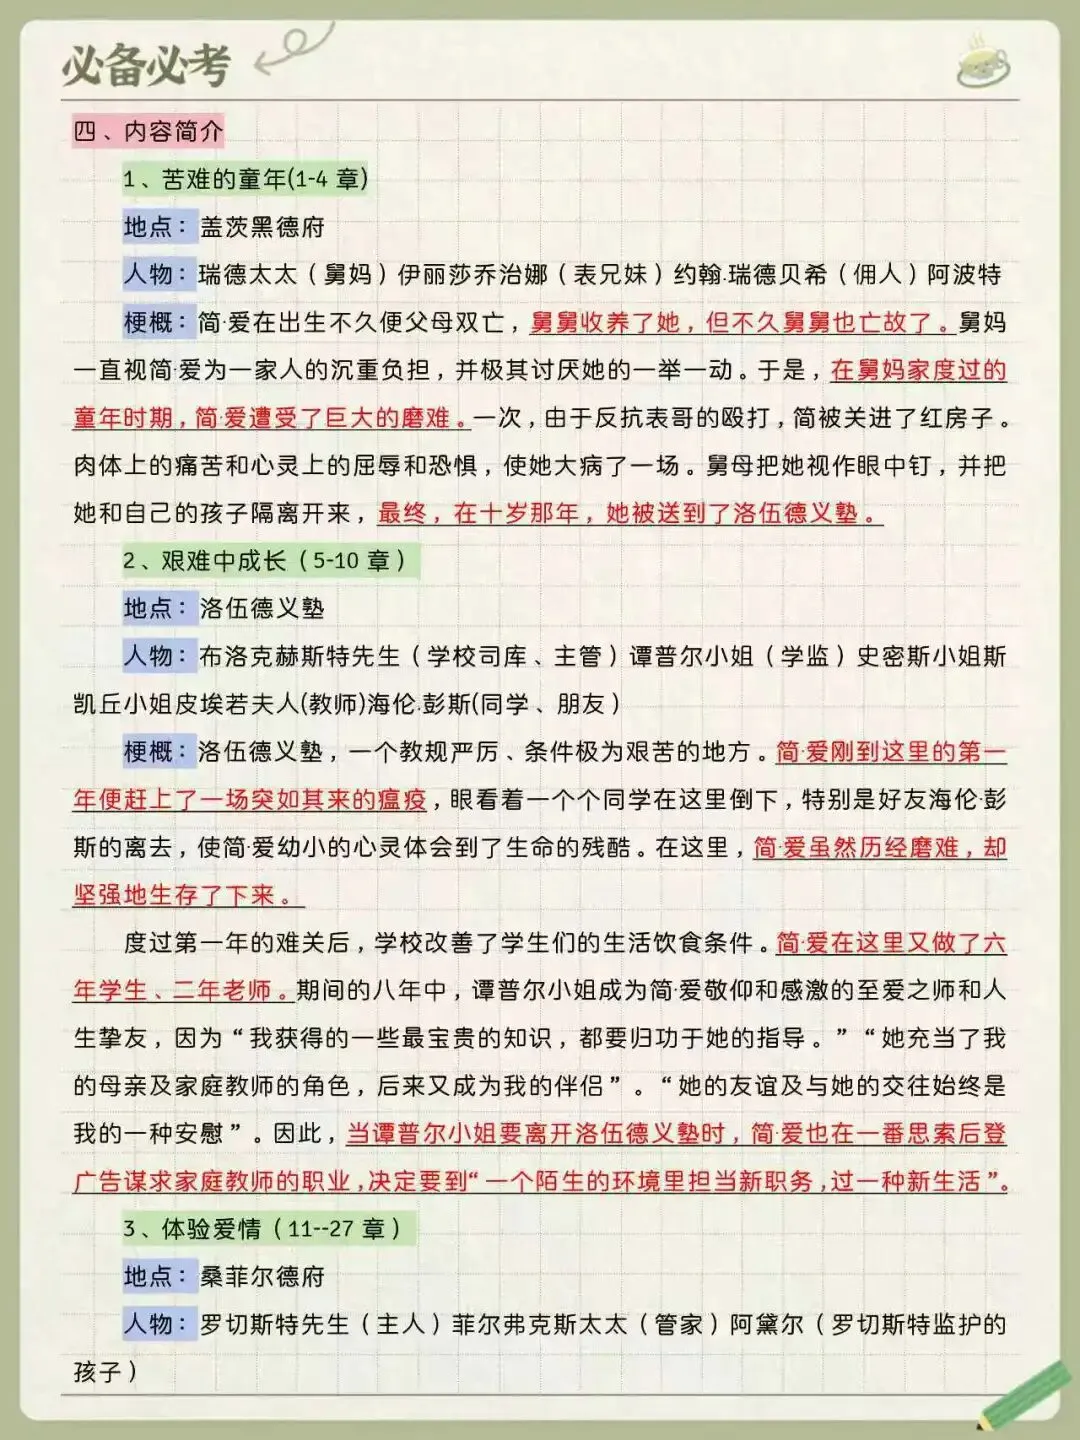 必备必考
四、内容简介
1、苦难的童年(1-4 章)
地点：盖茨黑德府
人物：瑞德太太（舅妈）伊丽莎乔治娜（表兄妹）约翰.瑞德贝希（佣人）阿波特
梗概：简·爱在出生不久便父母双亡，舅舅收养了她，但不久舅舅也亡故了。舅妈
一直视简·爱为一家人的沉重负担，并极其讨厌她的一举一动。于是，在舅妈家度过的
童年时期，简·爱遭受了巨大的磨难。一次，由于反抗表哥的殴打，简被关进了红房子。
肉体上的痛苦和心灵上的屈辱和恐惧，使她大病了一场。舅母把她视作眼中钉，并把
她和自己的孩子隔离开来，最终，在十岁那年，她被送到了洛伍德义塾。
2、艰难中成长（5-10 章）
地点：洛伍德义塾
人物：布洛克赫斯特先生（学校司库、主管）谭普尔小姐（学监）史密斯小姐斯
凯丘小姐皮埃若夫人(教师)海伦.彭斯(同学、朋友）
梗概：洛伍德义塾，一个教规严厉、条件极为艰苦的地方。简·爱刚到这里的第一
年便赶上了一场突如其来的瘟疫，眼看着一个个同学在这里倒下，特别是好友海伦·彭
斯的离去，使简·爱幼小的心灵体会到了生命的残酷。在这里，简·爱虽然历经磨难，却
坚强地生存了下来。
度过第一年的难关后，学校改善了学生们的生活饮食条件。简·爱在这里又做了六
年学生、二年老师。期间的八年中，谭普尔小姐成为简·爱敬仰和感激的至爱之师和人
生挚友，因为“我获得的一些最宝贵的知识，都要归功于她的指导。”“她充当了我
的母亲及家庭教师的角色，后来又成为我的伴侣”。“她的友谊及与她的交往始终是
我的一种安慰”。因此，当谭普尔小姐要离开洛伍德义塾时，简·爱也在一番思索后登
广告谋求家庭教师的职业，决定要到“一个陌生的环境里担当新职务，过一种新生活”。
3、体验爱情（11--27 章）
地点：桑菲尔德府
人物：罗切斯特先生（主人）菲尔弗克斯太太（管家）阿黛尔（罗切斯特监护的
孩子）